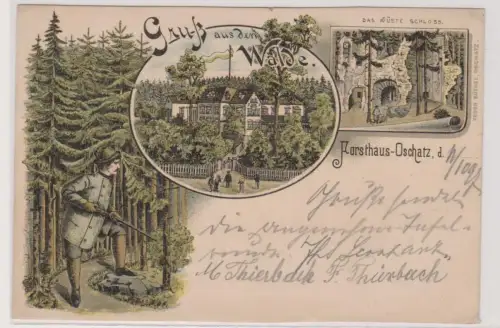 Gruß aus dem Walde.
DAS WÜSTE SCHLOSS.
Forsthaus-Oschatz, d.
Grüße sendet
die angenehme Tafel-
runde
M Thierbach F. Thierbach